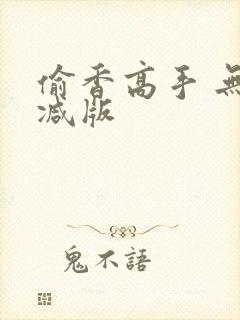 偷香高手 無
减版
鬼不語